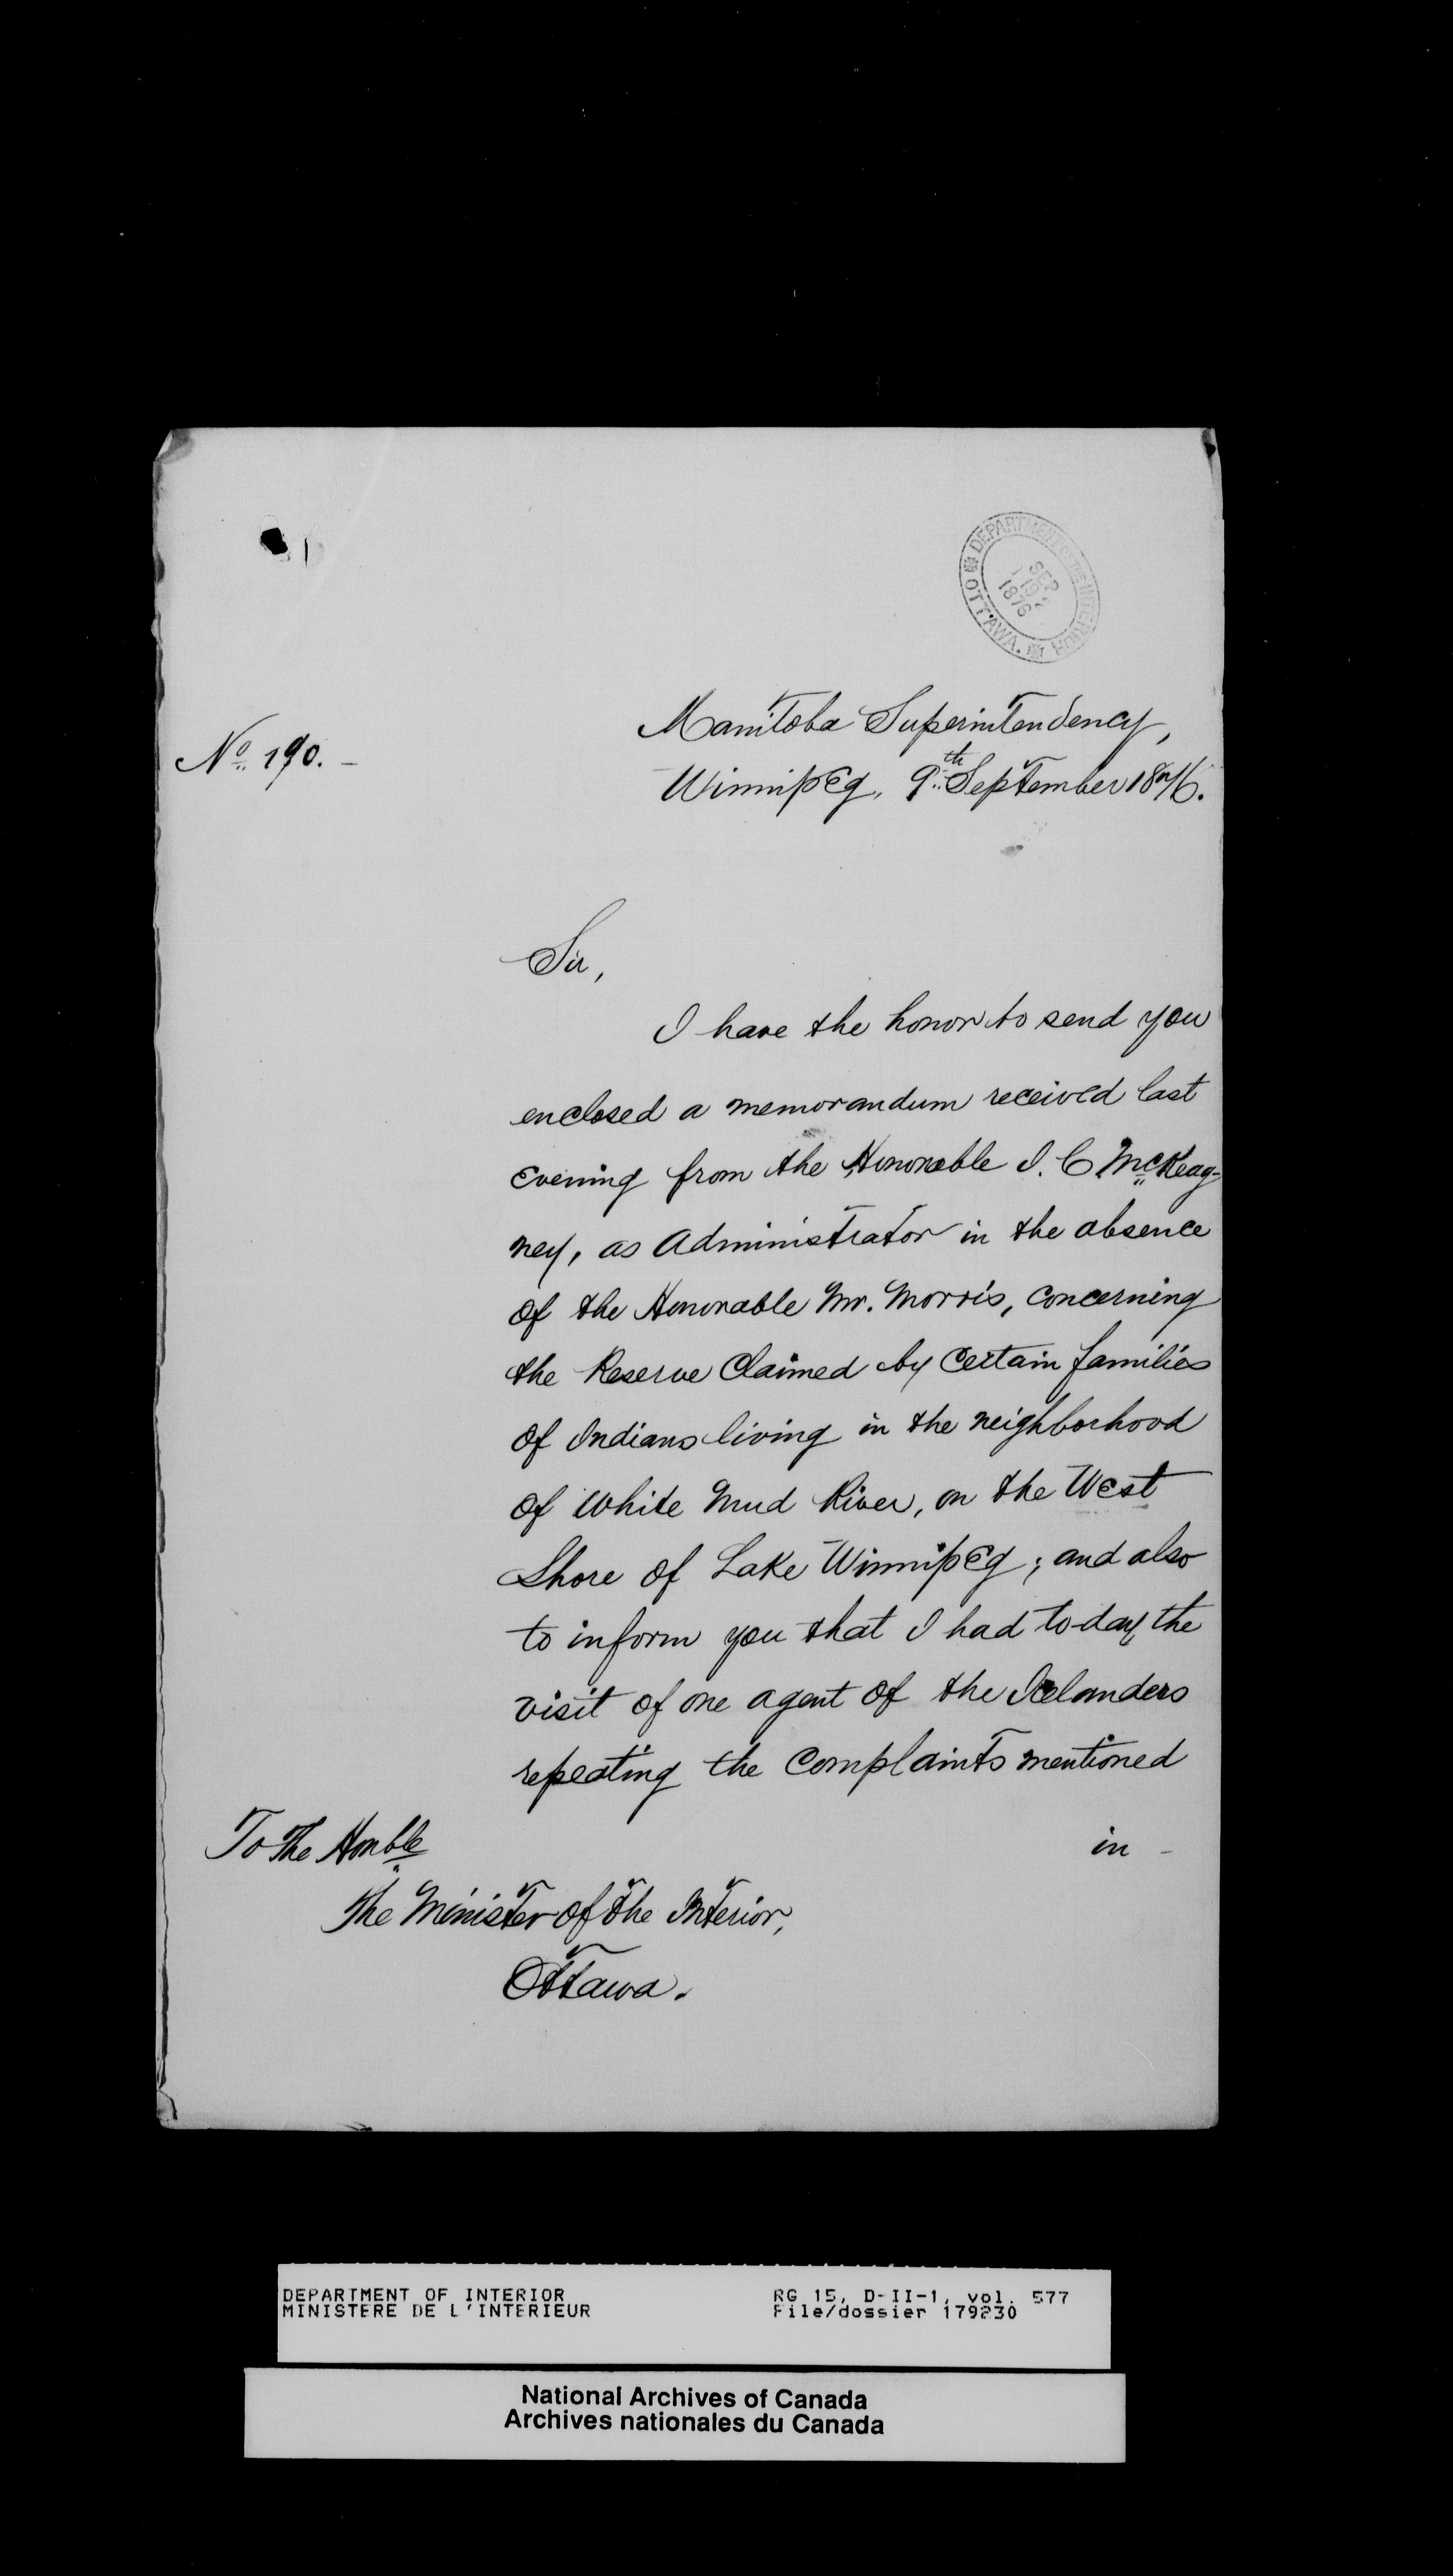 DEPARTMENT OF THE INTERIOR
OTTAWA.
SEP
1876
Manitoba Superintendency,
No. 190. -
Winnipeg, 9th September 1876.
Sir,
I have the honor to send you
enclosed a memorandum received last
evening from the Honorable J. C. McKeag-
ney, as Administrator in the absence
of the Honorable Mr. Morris, concerning
the Reserve Claimed by Certain families
of Indians living in the neighborhood
of White Mud River, on the West
Shore of Lake Winnipeg; and also
to inform you that I had to-day the
visit of one agent of the Icelanders
repeating the Complaints mentioned
in -
To The Honble
The Minister of the Interior,
Ottawa.
DEPARTMENT OF INTERIOR
MINISTERE DE L'INTERIEUR
RG 15, D-II-1, vol. 577
File/dossier 179230
National Archives of Canada
Archives nationales du Canada